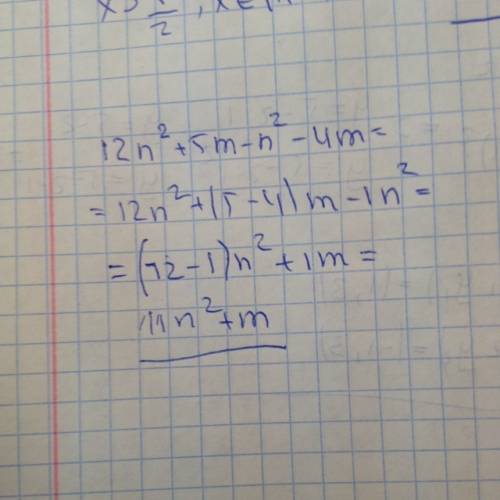 12n² + 5m - n² - 4m =
= 12n² + (5 - 4)m - 1n² =
= (12 - 1)n² + 1m =
11n² + m